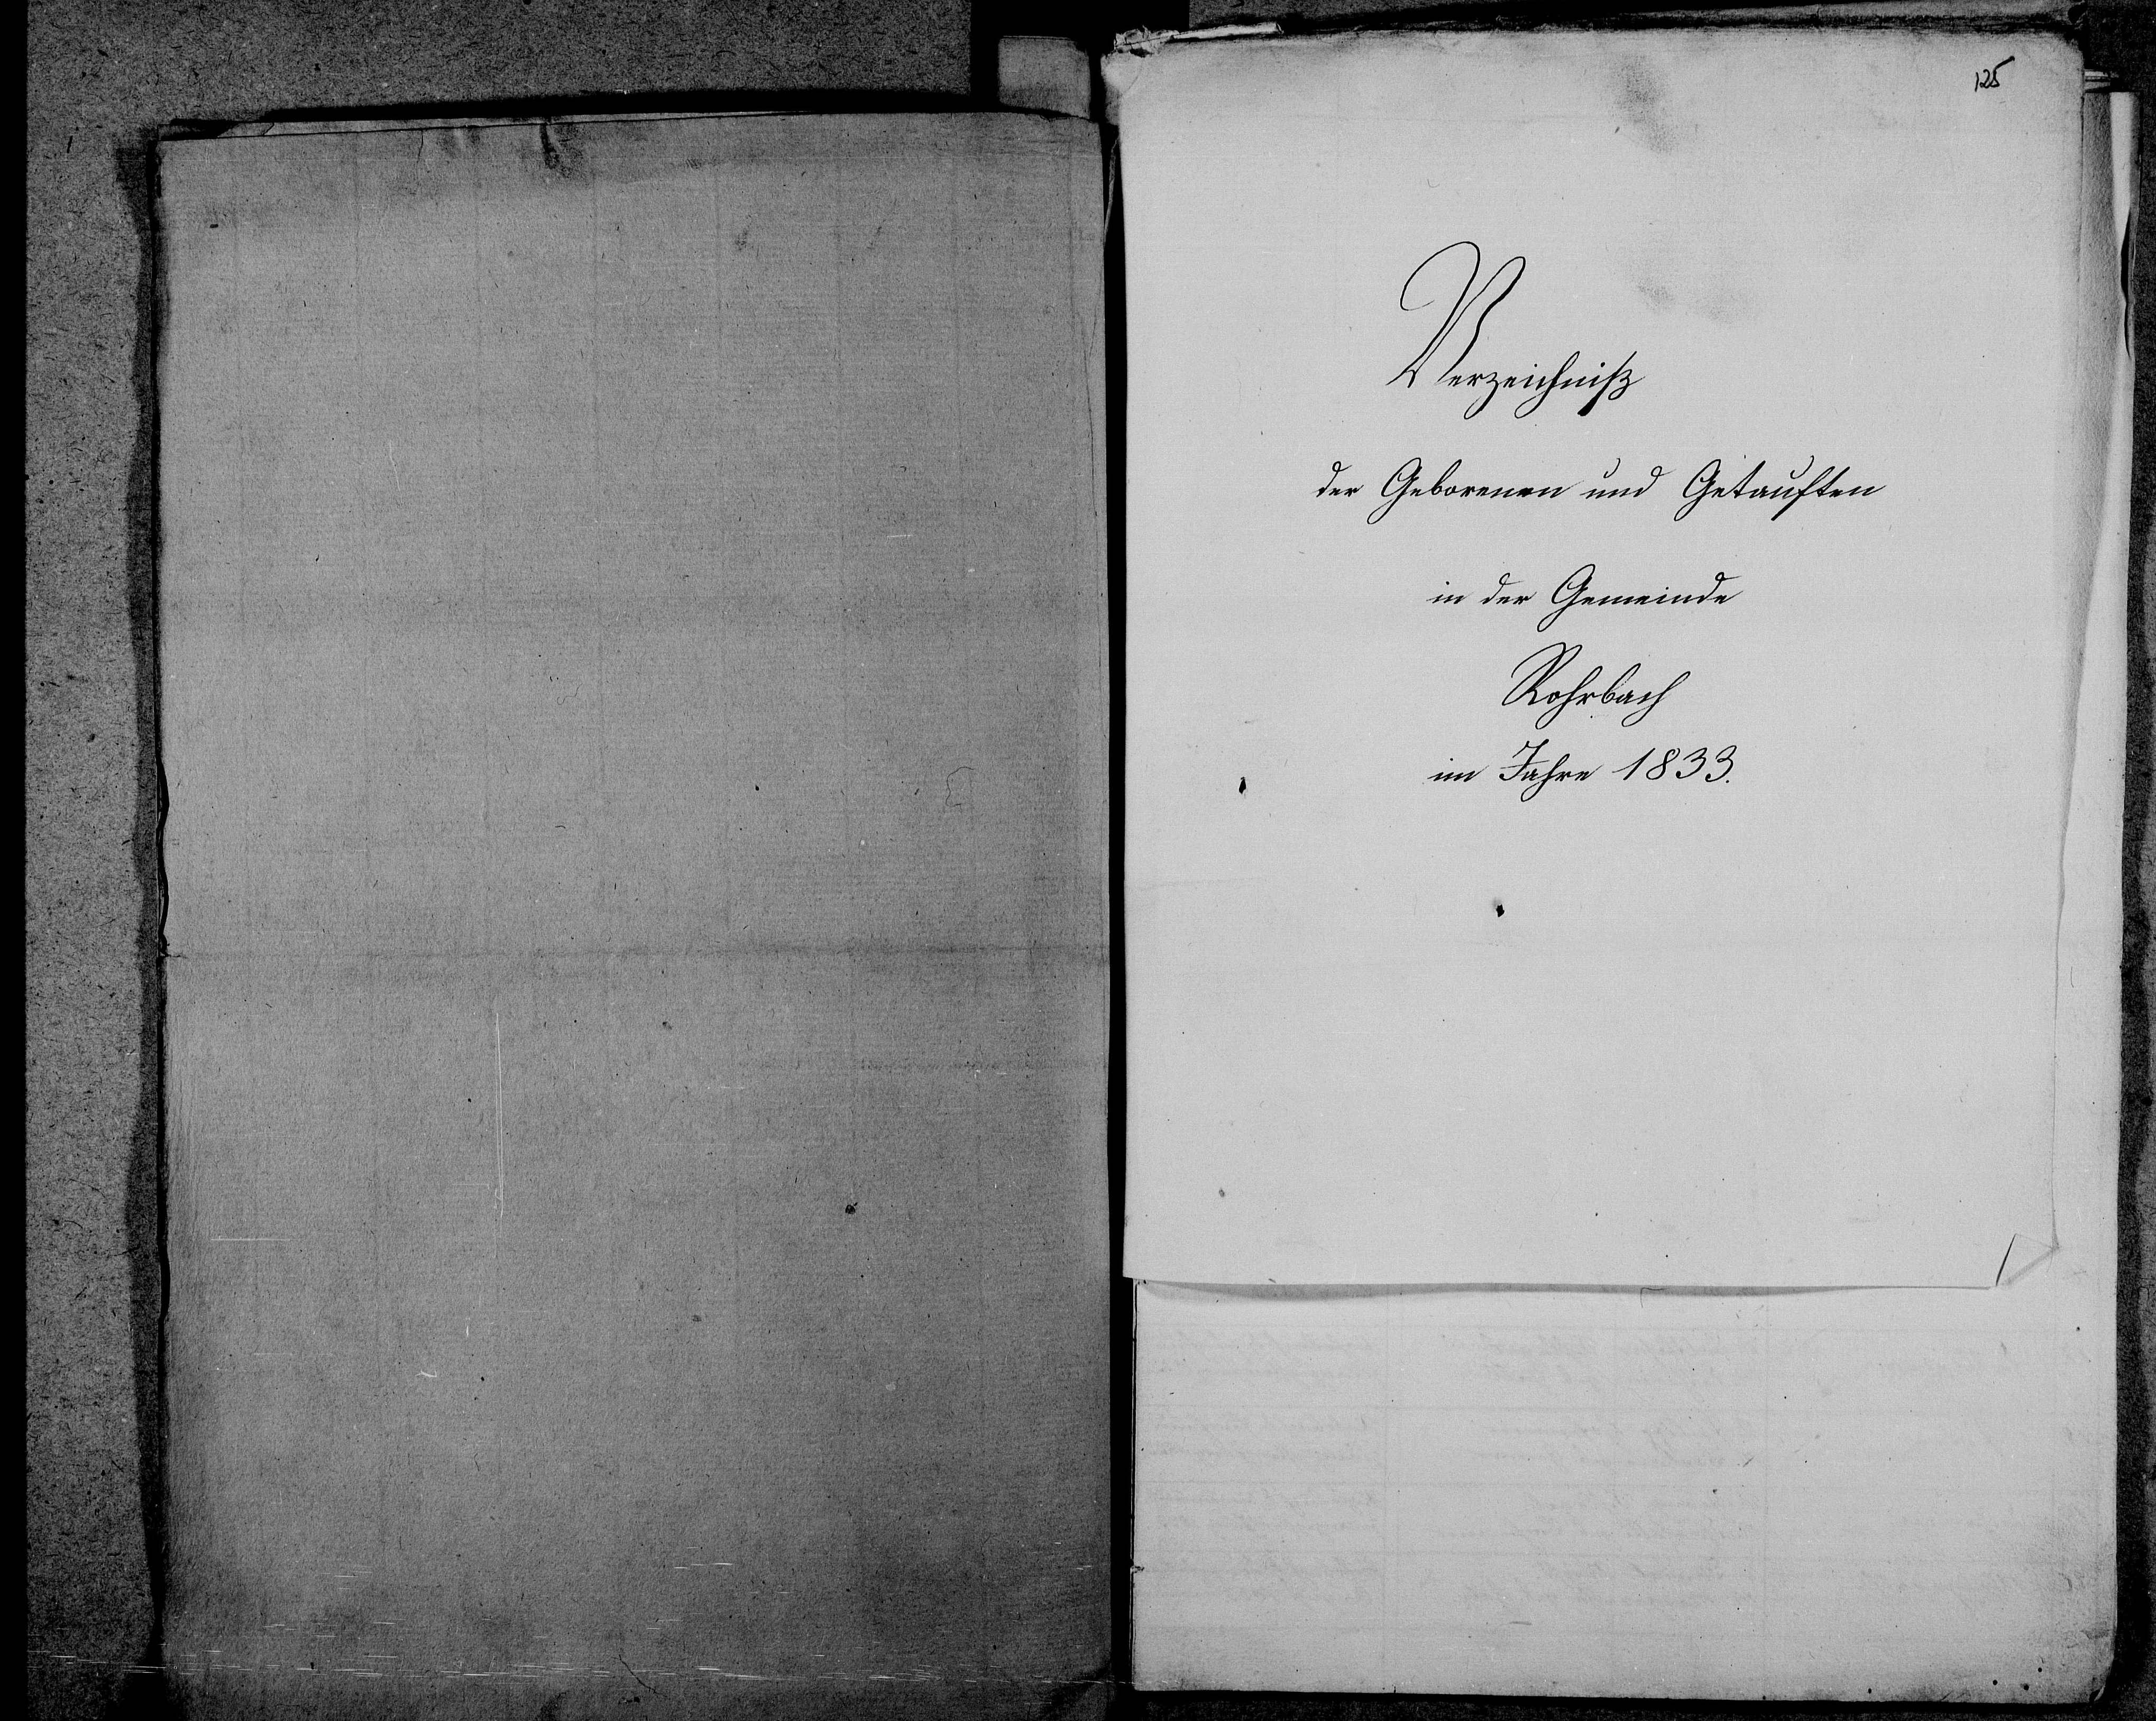 125
Verzeichniß
der Geborenen und Getauften
in der Gemeinde
Rohrbach
im Jahre 1833.